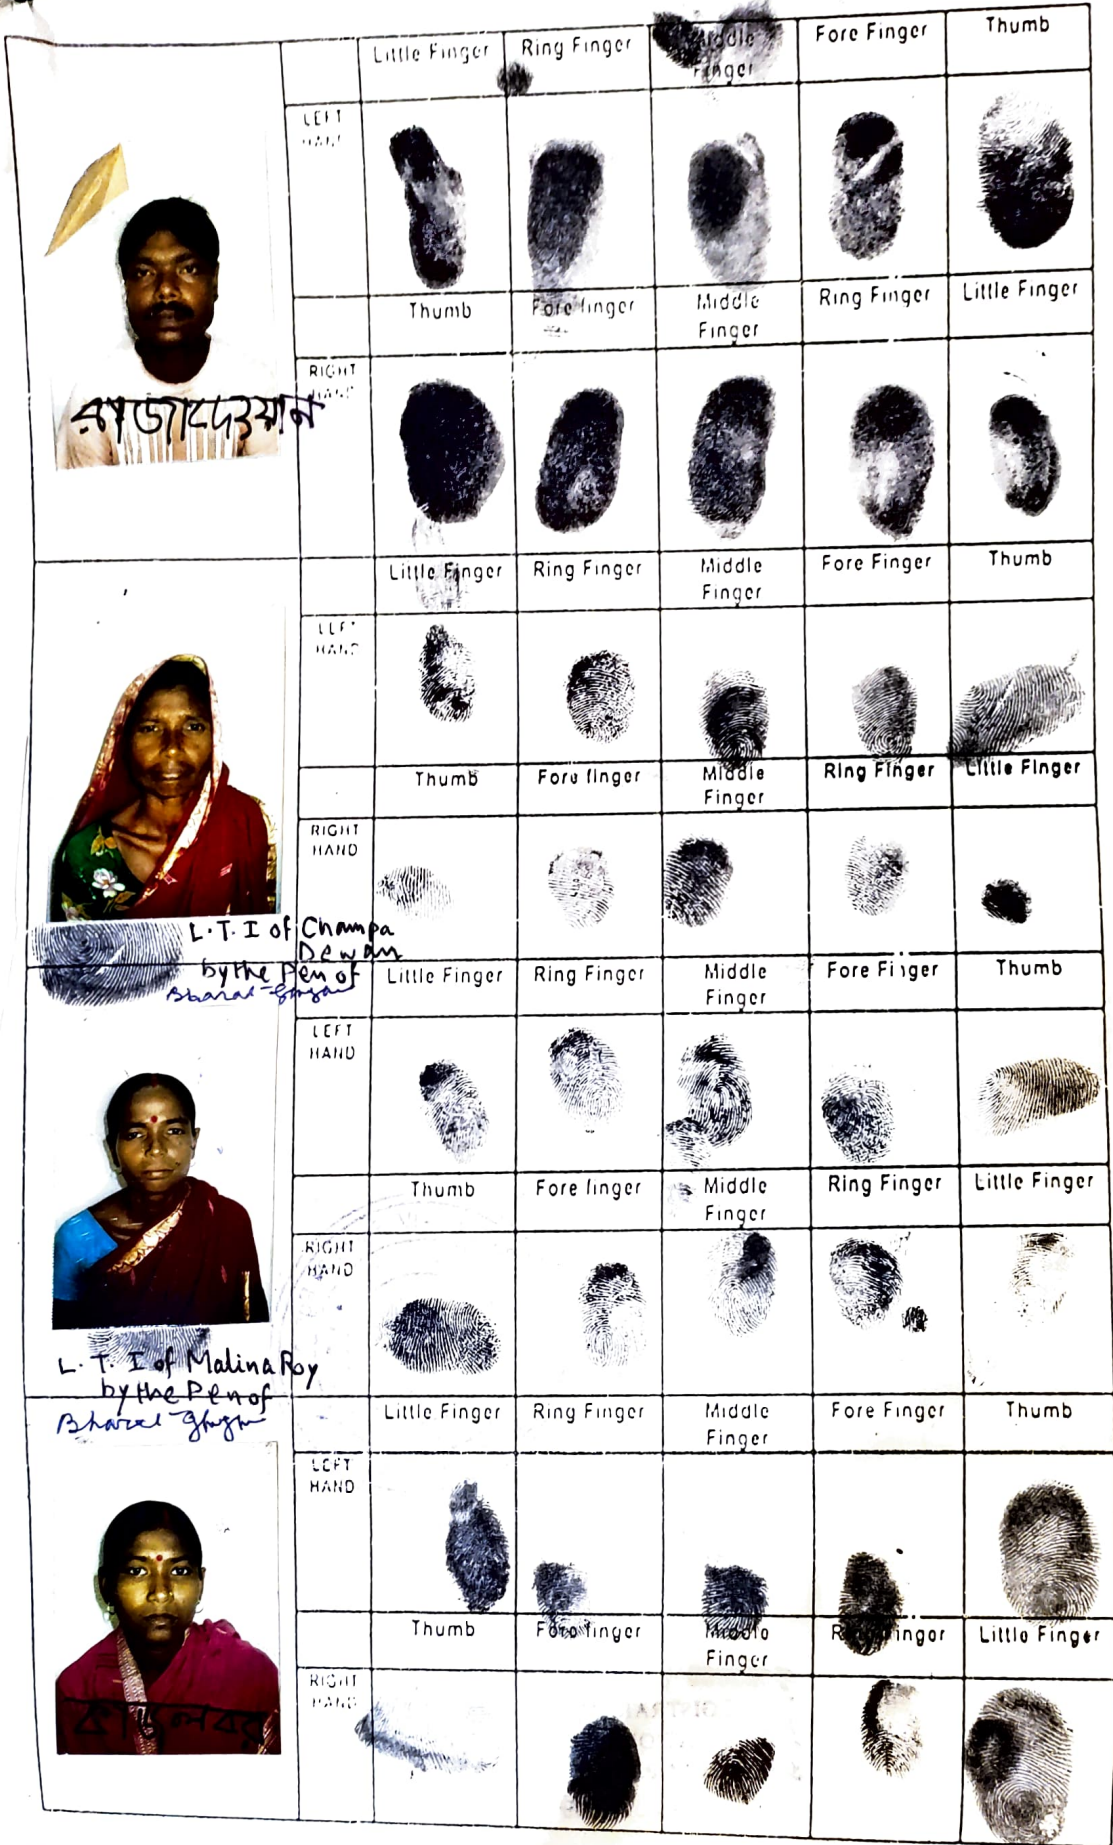 Little Finger Ring Finger Middle Finger Fore Finger Thumb
LEFT HAND
Thumb Fore finger Middle Finger Ring Finger Little Finger
RIGHT HAND
রাজা দেওয়ান
Little Finger Ring Finger Middle Finger Fore Finger Thumb
LEFT HAND
Thumb Fore finger Middle Finger Ring Finger Little Finger
RIGHT HAND
L.T.I of Champa
Dewan
by the Pen of
Bharat
Little Finger Ring Finger Middle Finger Fore Finger Thumb
LEFT HAND
Thumb Fore finger Middle Finger Ring Finger Little Finger
RIGHT HAND
L.T.I of Malina Roy
by the Pen of
Bharat
Little Finger Ring Finger Middle Finger Fore Finger Thumb
LEFT HAND
Thumb Fore finger Middle Finger Ring Finger Little Finger
RIGHT HAND